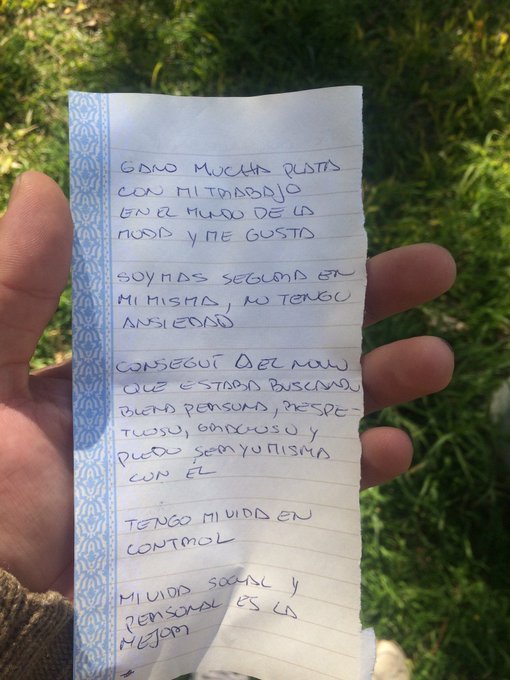 GANO MUCHA PLATA
CON MI TRABAJO
EN EL MUNDO DE LA
MODA Y ME GUSTA
SOY MAS SEGURA EN
MI MISMA, NO TENGO
ANSIEDAD
CONSEGUÍ EL NOVIO
QUE ESTABA BUSCANDO
BUENA PERSONA, RESPE-
TUOSO, GRACIOSO Y
PUEDO SER YO MISMA
CON ÉL
TENGO MI VIDA EN
CONTROL
MI VIDA SOCIAL Y
PERSONAL ES LA
MEJOR